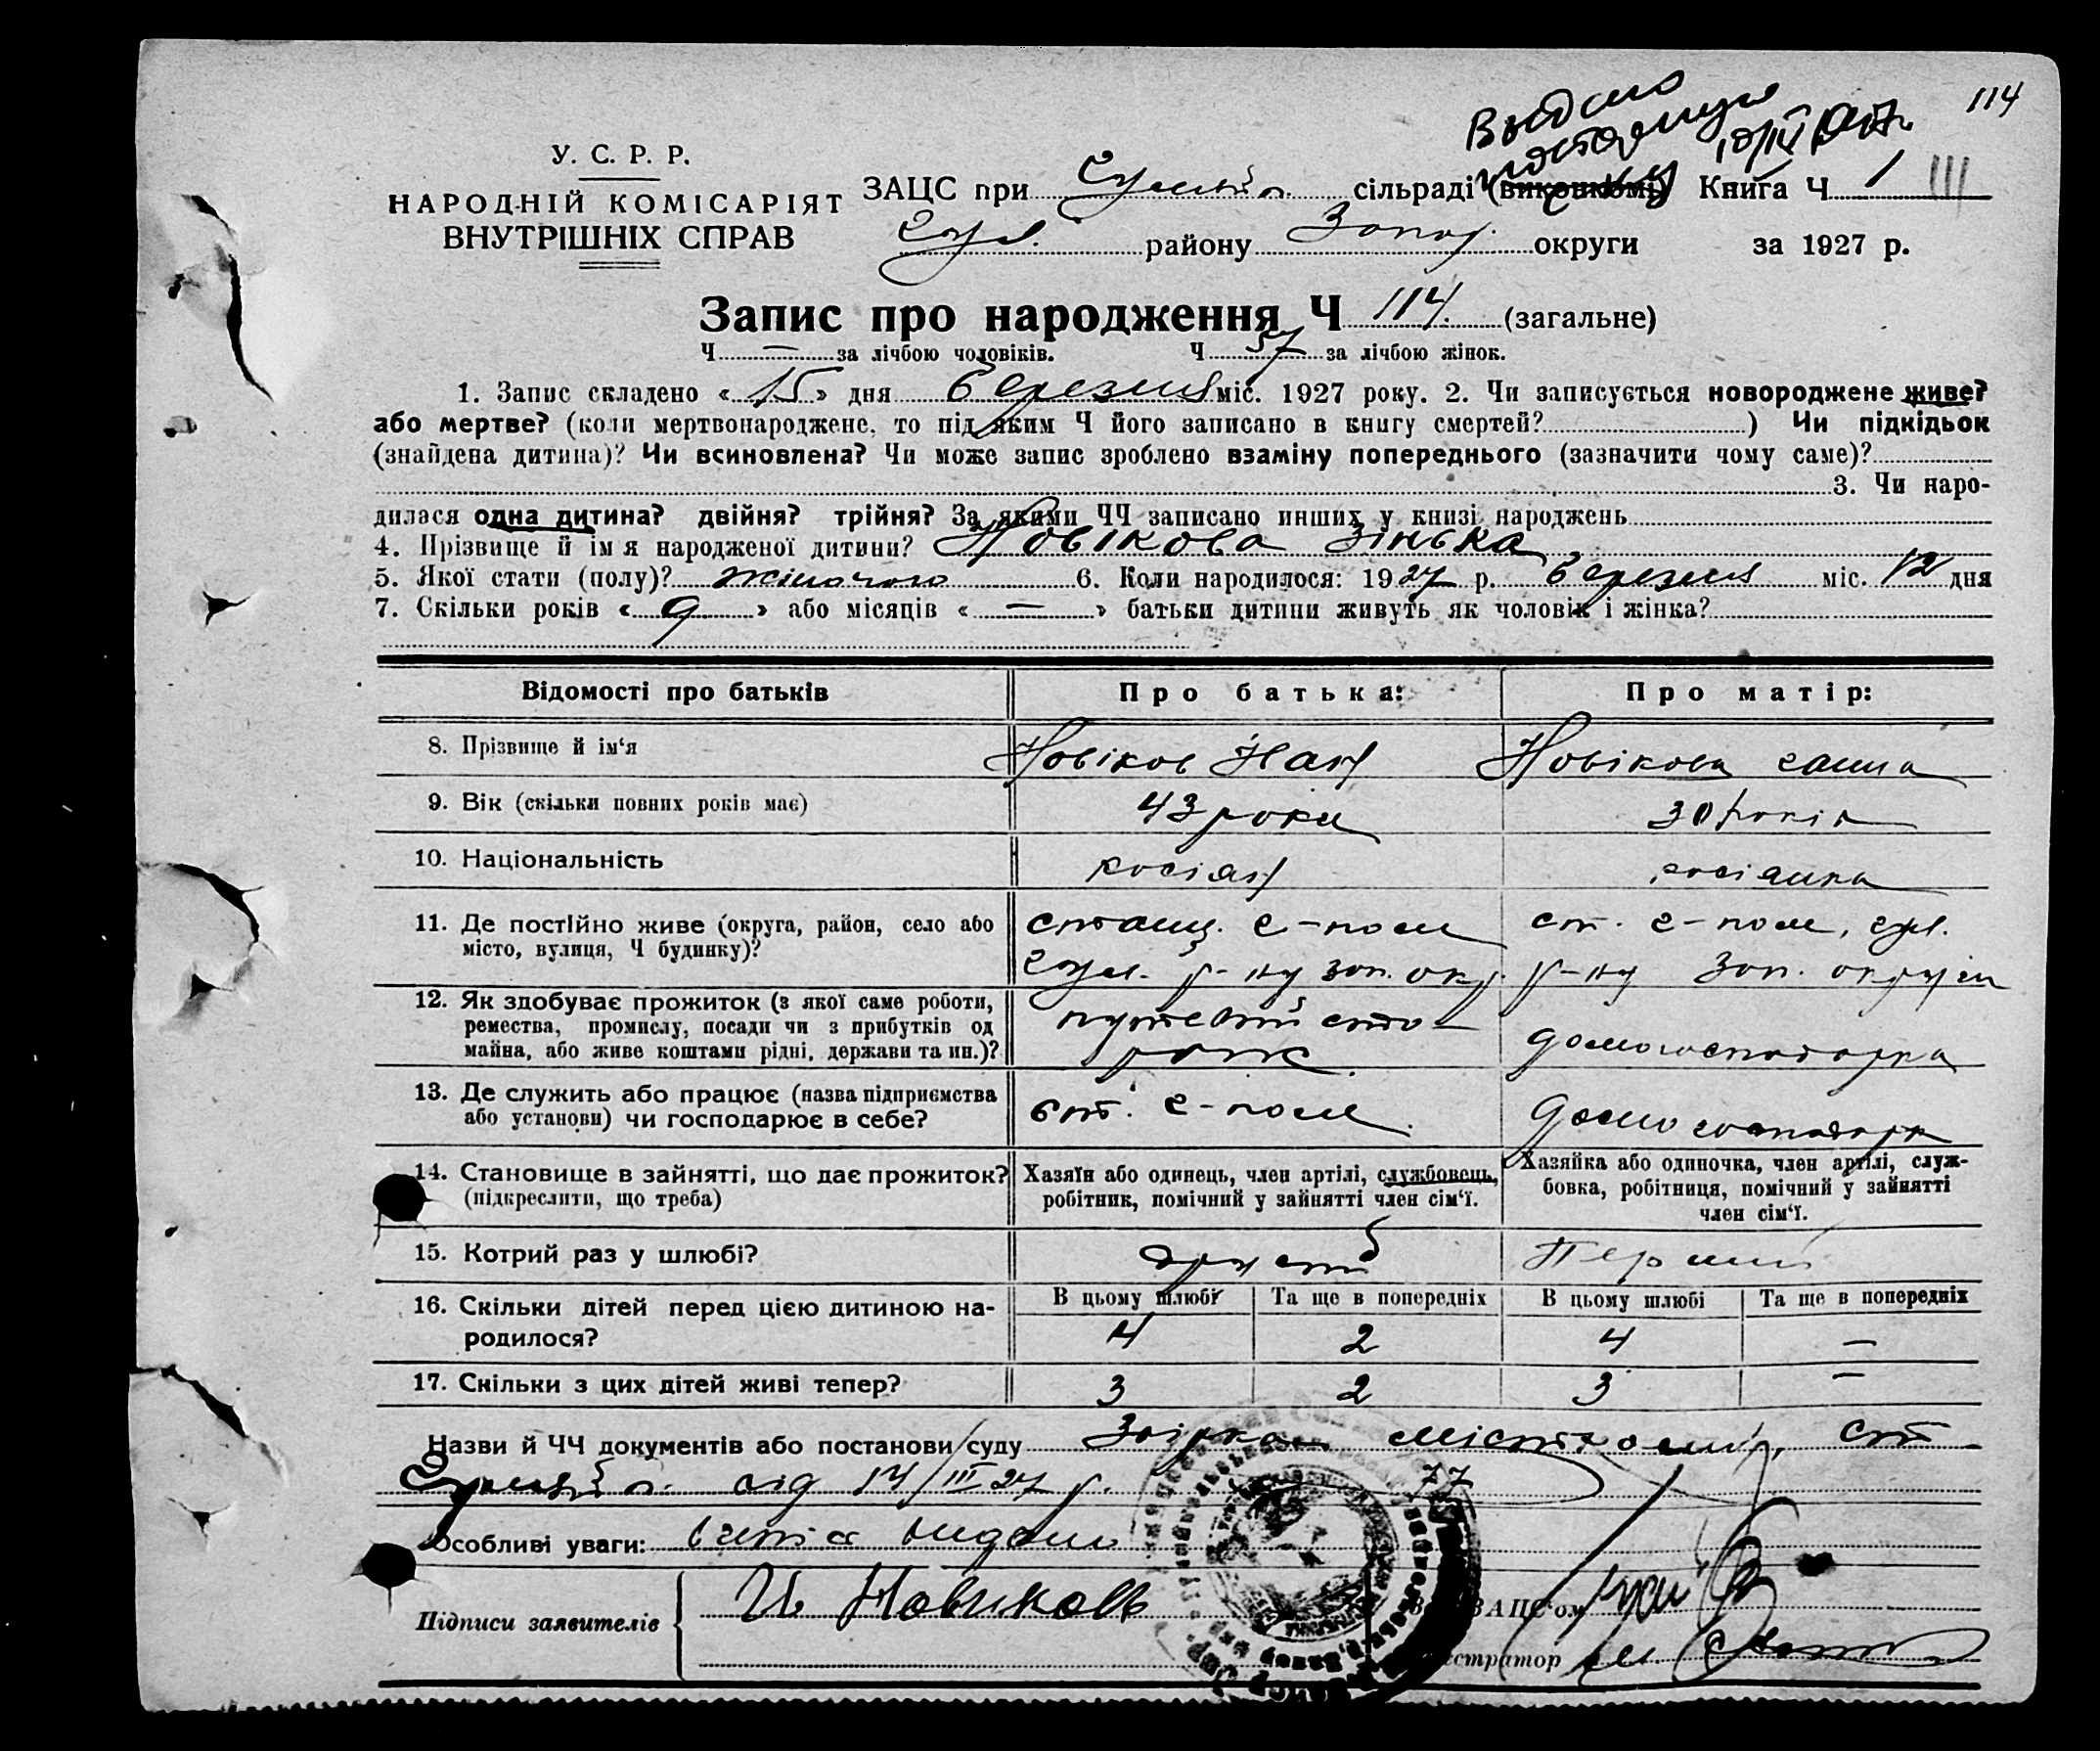 114
Выдано
У. С. Р. Р.
НАРОДНІЙ КОМІСАРІЯТ
ВНУТРІШНІХ СПРАВ
ЗАЦС при сільраді (виконкомі) Книга Ч 1
району Запор. округи за 1927 р.
Запис про народження Ч 114. (загальне)
Ч — за лічбою чоловіків. Ч 57 за лічбою жінок.
1. Запис складено «15» дня березня міс. 1927 року. 2. Чи записується новороджене живе?
або мертве? (коли мертвонароджене, то під яким Ч його записано в книгу смертей? ) Чи підкідьок
(знайдена дитина)? Чи всиновлена? Чи може запис зроблено взаміну попереднього (зазначити чому саме)?
3. Чи наро-
дилася одна дитина? двійня? трійня? За якими ЧЧ записано инших у книзі народжень
4. Прізвище й ім я народженої дитини? Новікова Зінька
5. Якої стати (полу)? жіночого 6. Коли народилося: 1927 р. березня міс. 12 дня
7. Скільки років «9» або місяців «—» батьки дитини живуть як чоловік і жінка?
Відомості про батьків Про батька: Про матір:
8. Прізвище й ім‘я Новіков Іван Новікова Ганна
9. Вік (скільки повних років має) 43 роки 30 років
10. Національність росіян росіянка
11. Де постійно живе (округа, район, село або станц. Г-поле ст. Г-поле, Гул.
місто, вулиця, Ч будинку)? Гул. р-ну Зап. окр. р-ну Зап. округи
12. Як здобуває прожиток (з якої саме роботи, путевий сто-
ремества, промислу, посади чи з прибутків од рож домогосподарка
майна, або живе коштами рідні, держави та ин.)?
13. Де служить або працює (назва підприємства ст. Г-поле. домогосподарк
або установи) чи господарює в себе?
14. Становище в зайнятті, що дає прожиток? Хазяїн або одинець, член артілі, службовець, Хазяйка або одиночка, член артілі, служ-
(підкреслити, що треба) робітник, помічний у зайнятті член сім‘ї. бовка, робітниця, помічний у зайнятті
член сім‘ї.
15. Котрий раз у шлюбі? другий Перший
16. Скільки дітей перед цією дитиною на- В цьому шлюбі Та ще в попередніх В цьому шлюбі Та ще в попередніх
родилося? 4 2 4 —
17. Скільки з цих дітей живі тепер? 3 2 3 —
Назви й ЧЧ документів або постанови суду місткому, ст
від 14/III 27 р. 77
Особливі уваги: видано
Підписи заявителів И Новиковъ ЗАЦС‘ом